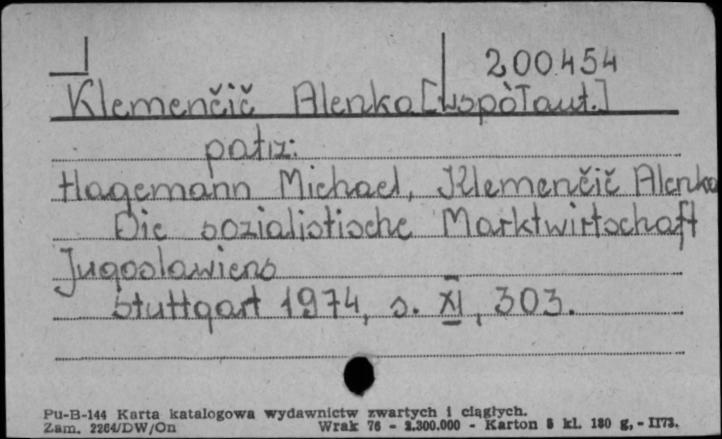 200454
Klemenčič Alenka [współaut.]
patrz:
Hagemann Michael, Klemenčič Alenka
Die sozialistische Marktwirtschaft
Jugoslawiens
Stuttgart 1974, s. XI, 303.
Pu-B-144 Karta katalogowa wydawnictw zwartych i ciągłych.
Zam. 2264/DW/On Wrak 76 - 2.300.000 - Karton 5 kl. 180 g, - II73.